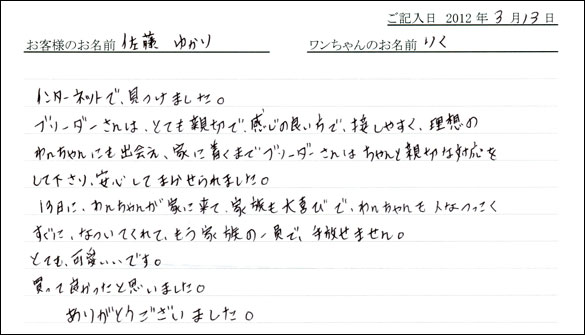 ご記入日 2012年3月13日
お客様のお名前 佐藤 ゆかり ワンちゃんのお名前 りく
インターネットで、見つけました。
ブリーダーさんは、とても親切で、感じの良い方で、接しやすく、理想の
わんちゃんにも出会え、家に着くまでブリーダーさんはちゃんと親切な対応を
して下さり、安心してまかせられました。
13日に、わんちゃんが家に来て、家族も大喜びで、わんちゃんも人なつっこく
すぐに、なついてくれて、もう家族の一員で、手放せません。
とても、可愛いいです。
買って良かったと思いました。
ありがとうございました。